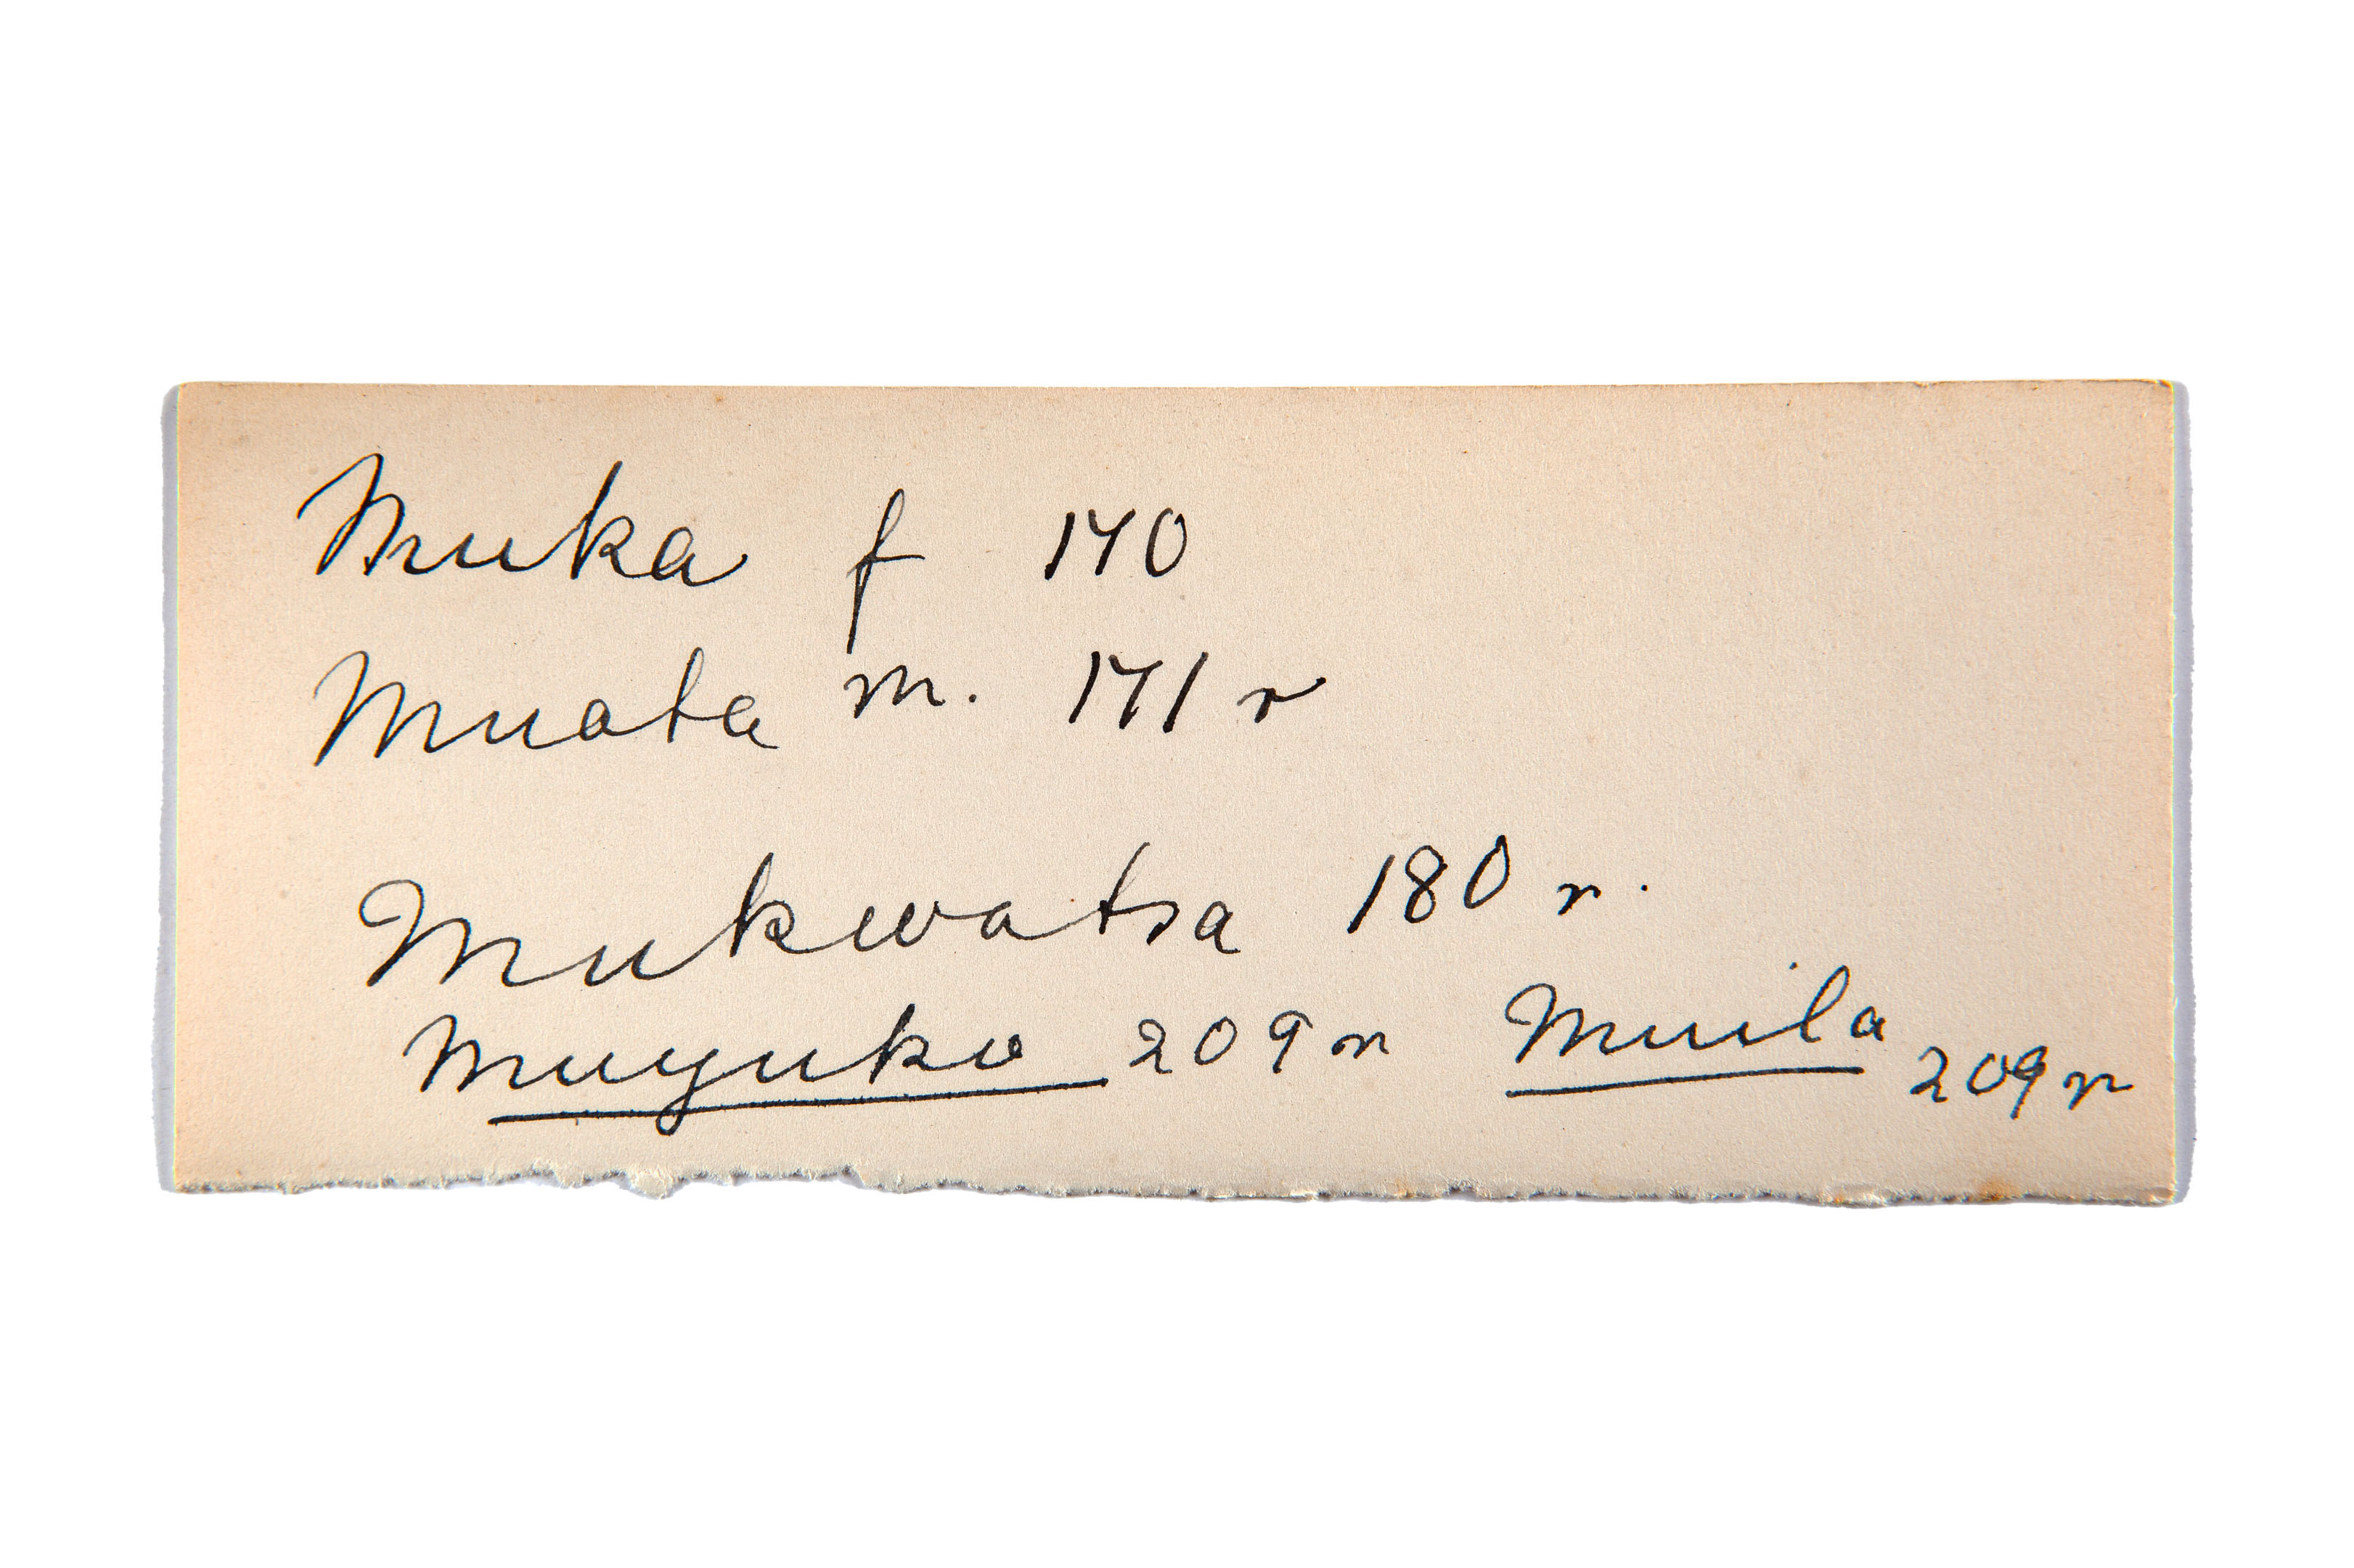 Muka f 140
Muata m. 141 r
Mukwatsa 180 r.
Muyuko 209 n Muila 209 n